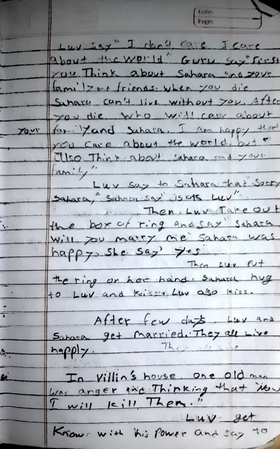 Date:
Page:
Luv say "I don't care I care
about the world" Guru say "First
you Think about Sahara and your
family and friends. When you die
Sahara can't live without you. After
you die. Who will care about
your family and Suhara. I am happy that
you care about the world but
Also Think about Sahara and your
family"
Luv say to Sahara that "Sorry
Sahara," Sahara say "its ok Luv"
Then Luv Take out
the box of ring and say "Sahara
Will you marry me" Sahara was
happy. She say "yes
Then Luv Put
the ring on her hand. Sahara hug
to Luv and kiss. Luv also kiss.
After few days Luv and
Sahara get married. They all live
happly.
In Villin's house one old man
was anger and Thinking that "Now
I will kill Them."
Luv get
Know with his Power and say to